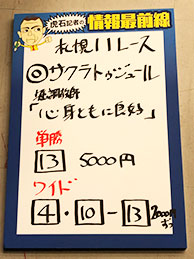 虎石記者の
情報最前線
札幌11レース
◎サクラトゥジュール
「心身ともに良好」
単勝
13 5000円
ワイド
4・10-13 2000円ずつ